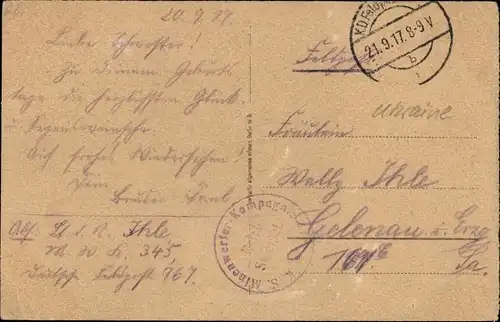 20.9.17.
Liebe Schwester!
Zu Deinem Geburts
tage die herzlichsten Glück
u. Segenswünsche.
Auf frohes Wiedersehen!
Dein
Bruder Paul
Abs: Lt d. R. Ihle
M. W. K. 345,
Deutsche Feldpost 767.
K.D. Feldp
21.9.17. 8-9 V
b
Feldpost
Ukraine
Fräulein
Welly Ihle
Gelenau i. Erzg
167b
Sa.
Minenwerfer-Kompagnie